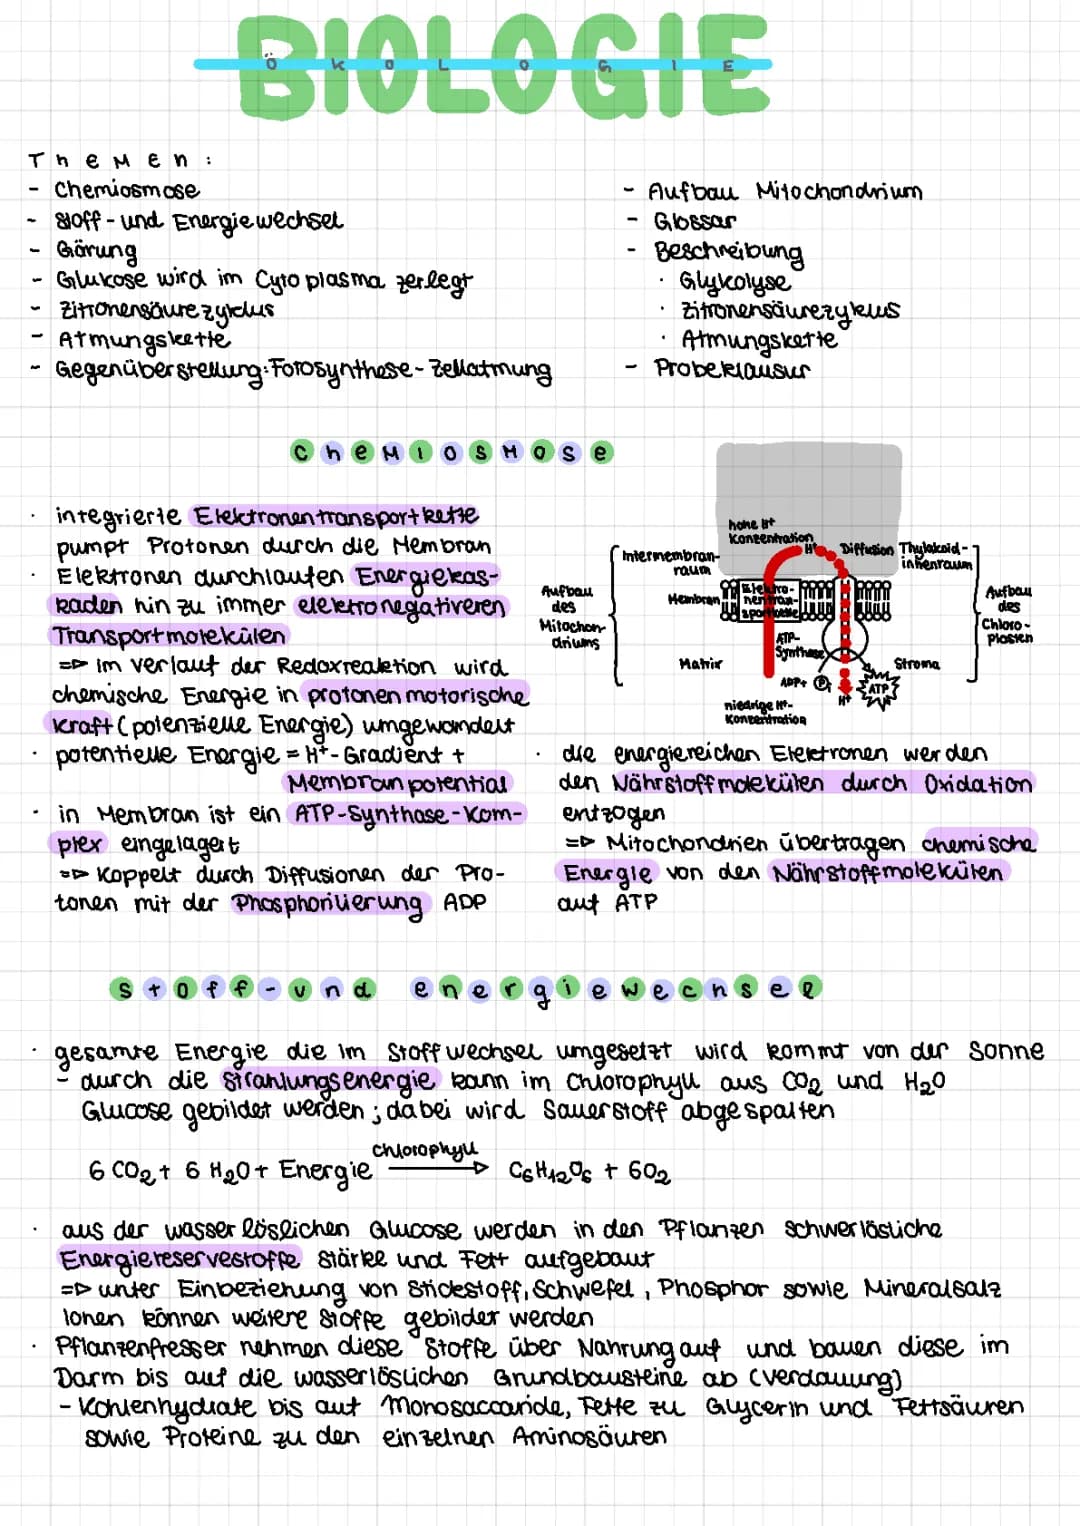 BIOLOGIE
ÖKOLOGIE
Themen:
- Chemiosmose
- Stoff- und Energiewechsel
- Gärung
- Glukose wird im Cytoplasma zerlegt
- Zitronensäurezyklus
- Atmungskette
- Gegenüberstellung: Fotosynthese - Zellatmung
- Aufbau Mitochondrium
- Glossar
- Beschreibung
· Glykolyse
· Zitronensäurezyklus
· Atmungskette
- Probeklausur
Chemiosmose
· integrierte Elektronentransportkette
pumpt Protonen durch die Membran
· Elektronen durchlaufen Energiekas-
kaden hin zu immer elektronegativeren
Transportmolekülen
=> im verlauf der Redoxreaktion wird
chemische Energie in protonenmotorische
Kraft (potenzielle Energie) umgewandelt
· potentielle Energie = H+-Gradient +
Membranpotential
· in Membran ist ein ATP-Synthase-Kom-
plex eingelagert
=> Koppelt durch Diffusionen der Pro-
tonen mit der Phosphorilierung ADP
hohe H+
Konzentration
H+
Diffusion
Thylakoid-
innenraum
Intermembran-
raum
Aufbau
des
Mitochon-
driums
Membran
Elektro-
nentran-
sportkette
Aufbau
des
Chloro-
plasten
ATP-
Synthase
Matrix
Stroma
ADP+ P
ATP
H+
niedrige H+-
Konzentration
· die energiereichen Elektronen werden
den Nährstoffmolekülen durch Oxidation
entzogen
=> Mitochondrien übertragen chemische
Energie von den Nährstoffmolekülen
auf ATP
Stoff- und energiewechsel
· gesamte Energie die im Stoffwechsel umgesetzt wird kommt von der Sonne
- durch die Strahlungsenergie kann im Chlorophyll aus CO2 und H2O
Glucose gebildet werden; dabei wird Sauerstoff abgespalten
Chlorophyll
6 CO2 + 6 H2O + Energie → C6H12O6 + 6O2
· aus der wasserlöslichen Glucose werden in den Pflanzen schwerlösliche
Energiereservestoffe Stärke und Fett aufgebaut
=> unter Einbeziehung von Stickstoff, Schwefel, Phosphor sowie Mineralsalz
Ionen können weitere Stoffe gebildet werden
· Pflanzenfresser nehmen diese Stoffe über Nahrung auf und bauen diese im
Darm bis auf die wasserlöslichen Grundbausteine ab (Verdauung)
- Kohlenhydrate bis auf Monosaccaride, Fette zu Glycerin und Fettsäuren
sowie Proteine zu den einzelnen Aminosäuren